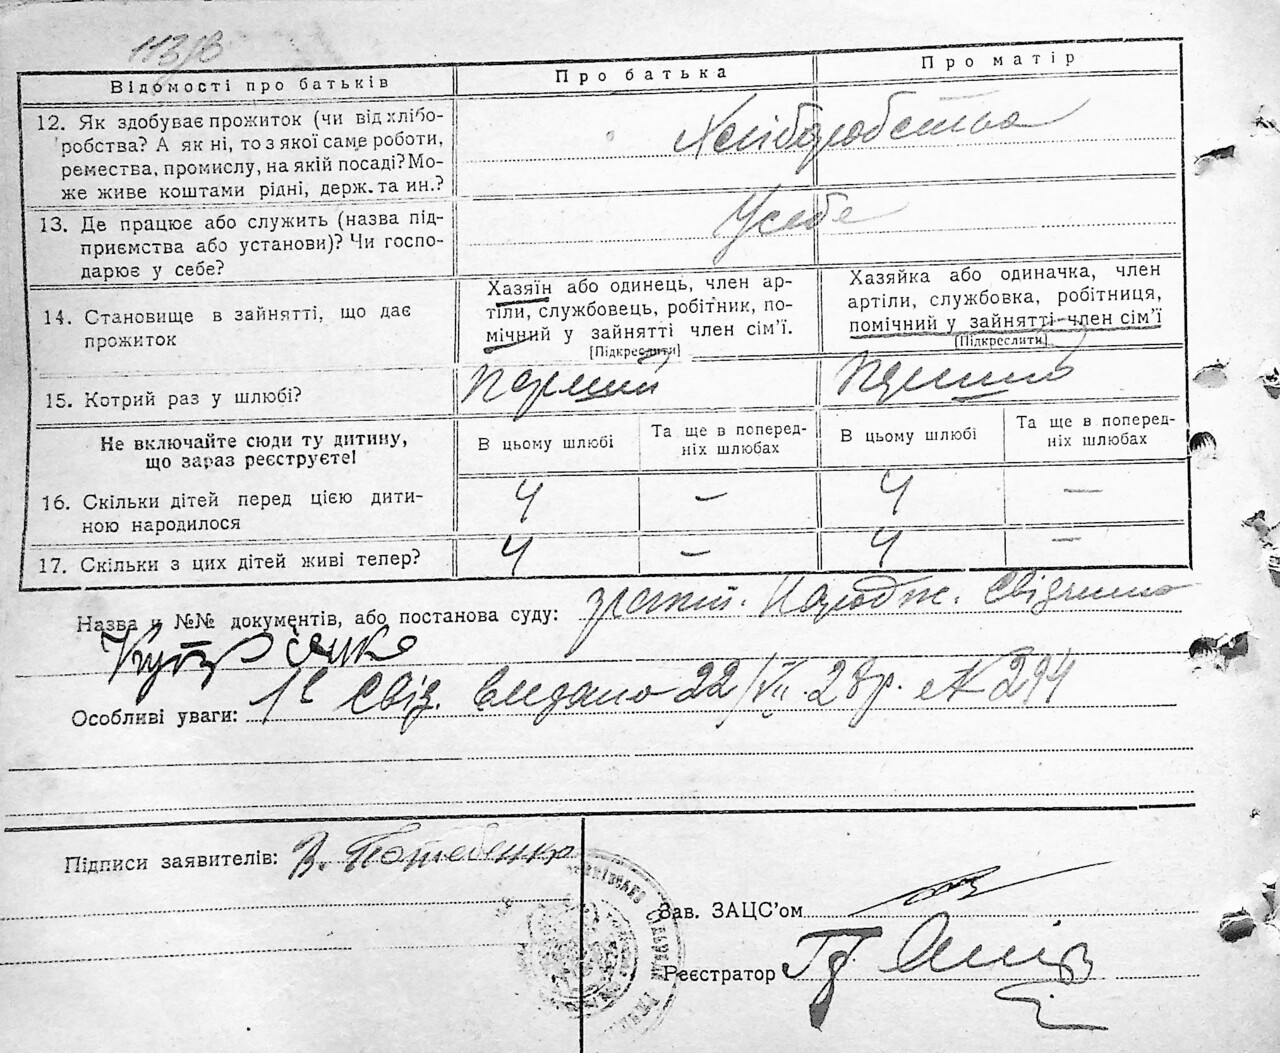 113/В
Відомості про батьків
Про батька
Про матір
12. Як здобуває прожиток (чи від хлібо-
робства? А як ні, то з якої саме роботи,
ремества, промислу, на якій посаді? Мо-
же живе коштами рідні, держ. та ин.?
Хліборобство
13. Де працює або служить (назва під-
приємства або установи)? Чи госпо-
дарює у себе?
У себе
14. Становище в зайнятті, що дає
прожиток
Хазяїн або одинець, член ар-
тіли, службовець, робітник, по-
мічний у зайнятті член сім’ї.
[Підкреслити]
Хазяйка або одиначка, член
артіли, службовка, робітниця,
помічний у зайнятті член сім’ї
[Підкреслити]
15. Котрий раз у шлюбі?
Не включайте сюди ту дитину,
що зараз реєструєте!
В цьому шлюбі
Та ще в поперед-
ніх шлюбах
В цьому шлюбі
Та ще в поперед-
ніх шлюбах
16. Скільки дітей перед цією дити-
ною народилося
4 – 4 –
17. Скільки з цих дітей живі тепер?
4 – 4 –
Назва и №№ документів, або постанова суду:
Особливі уваги: Свід. видано 22/VII 28р. № 294
Підписи заявителів: В. Потебенко
Зав. ЗАЦС’ом
Реєстратор